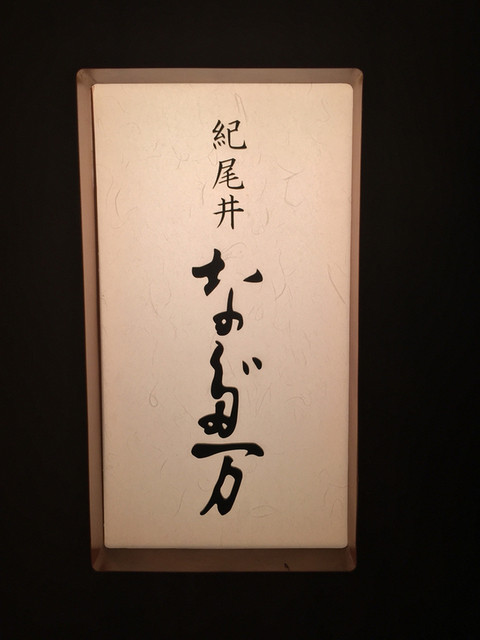 紀尾井
なだ万